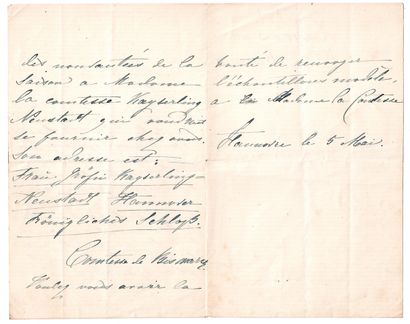 des nouveautés de la
saison à Madame
la comtesse Kayserling
Neustadt qui voudrait
se fournir chez vous.
Son adresse est:
Frau Gräfin Kayserling-
Neustadt Hannover
Königliches Schloß.
Comtesse de Bismarck
Voulez vous avoir la
bonté de renvoyer
l'échantillons modèle,
à Madame la Comtesse
Hannovre le 5 Mai.